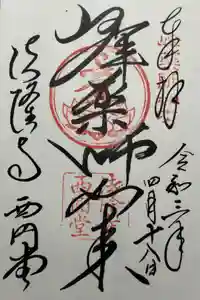 奉拝
令和三年
四月十八日
峰薬師如来
法隆寺 西円堂